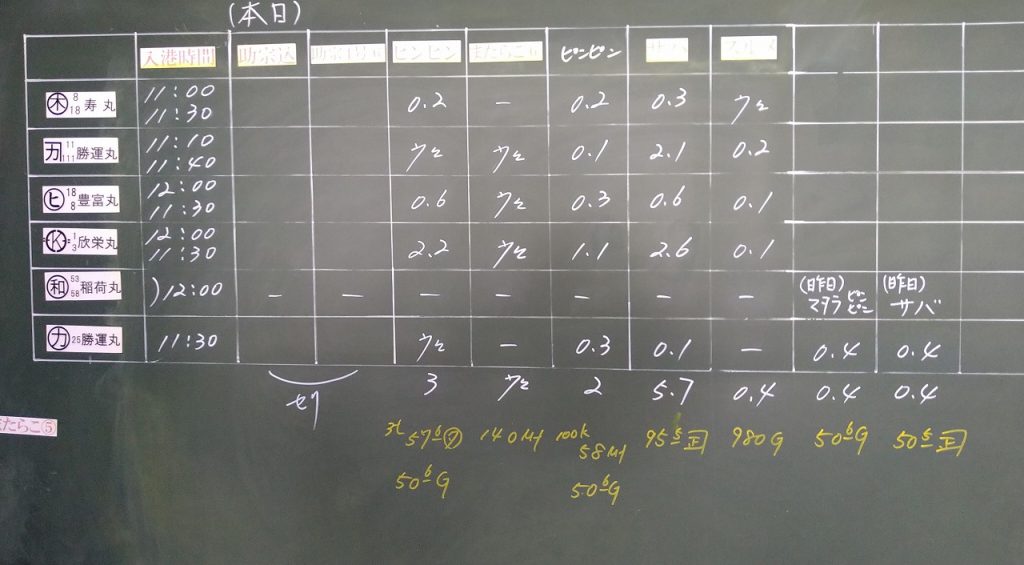 (本日)
入港時間 助宗込 ピンピン ピンピン サバ スルメ
木 8 18 寿丸 11:00 11:30 0.2 − 0.2 0.3 ケ
カ 11 111 勝運丸 11:10 11:40 ケ ケ 0.1 2.1 0.2
ヒ 18 8 豊富丸 12:00 11:30 0.6 ケ 0.3 0.6 0.1
K 1 3 欣栄丸 12:00 11:30 2.2 ケ 1.1 2.6 0.1
和 53 58 稲荷丸 )12:00 − − − − − − − (昨日) マダラ ピンピン (昨日) サバ
カ 25 勝運丸 11:30 ケ − 0.3 0.1 − 0.4 0.4
セリ 3 ケ 2 5.7 0.4 0.4 0.4
たらこ⑤
57 140 100k 95 正 980 G 50 G 50 正
50 G 58
50 G